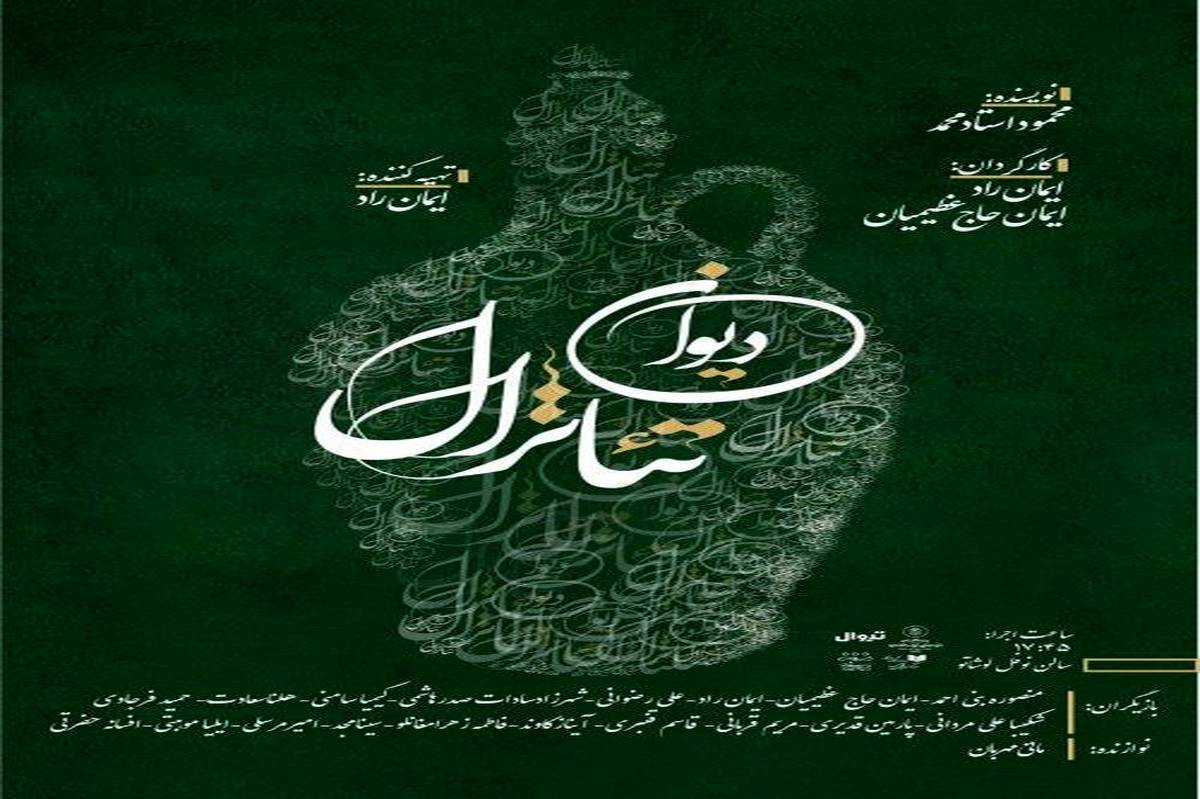 نویسنده:
محمود استاد محمد
کارگردان:
ایمان راد
ایمان حاج عظیمیان
تهیه کننده:
ایمان راد
دیوان
تئاترال
ساعت اجرا:
۱۷:۴۵
سالن نوفل لوشاتو
تیوال
بازیگران:
منصوره بنی احمد - ایمان حاج عظیمیان - ایمان راد - علی رضوانی - شهرزاد سادات صدرهاشمی - کیمیا سامنی - هلنا سعادت - حمید فرجادی
شکیبا علی مردانی - پارمین قدیری - مریم قربانی - قاسم قنبری - آیناز کاوند - فاطمه زهرا مغانلو - سینا مجد - امیر مرسلی - ایلیا موهبتی - افسانه حضرتی
نوازنده:
مانی مهربان